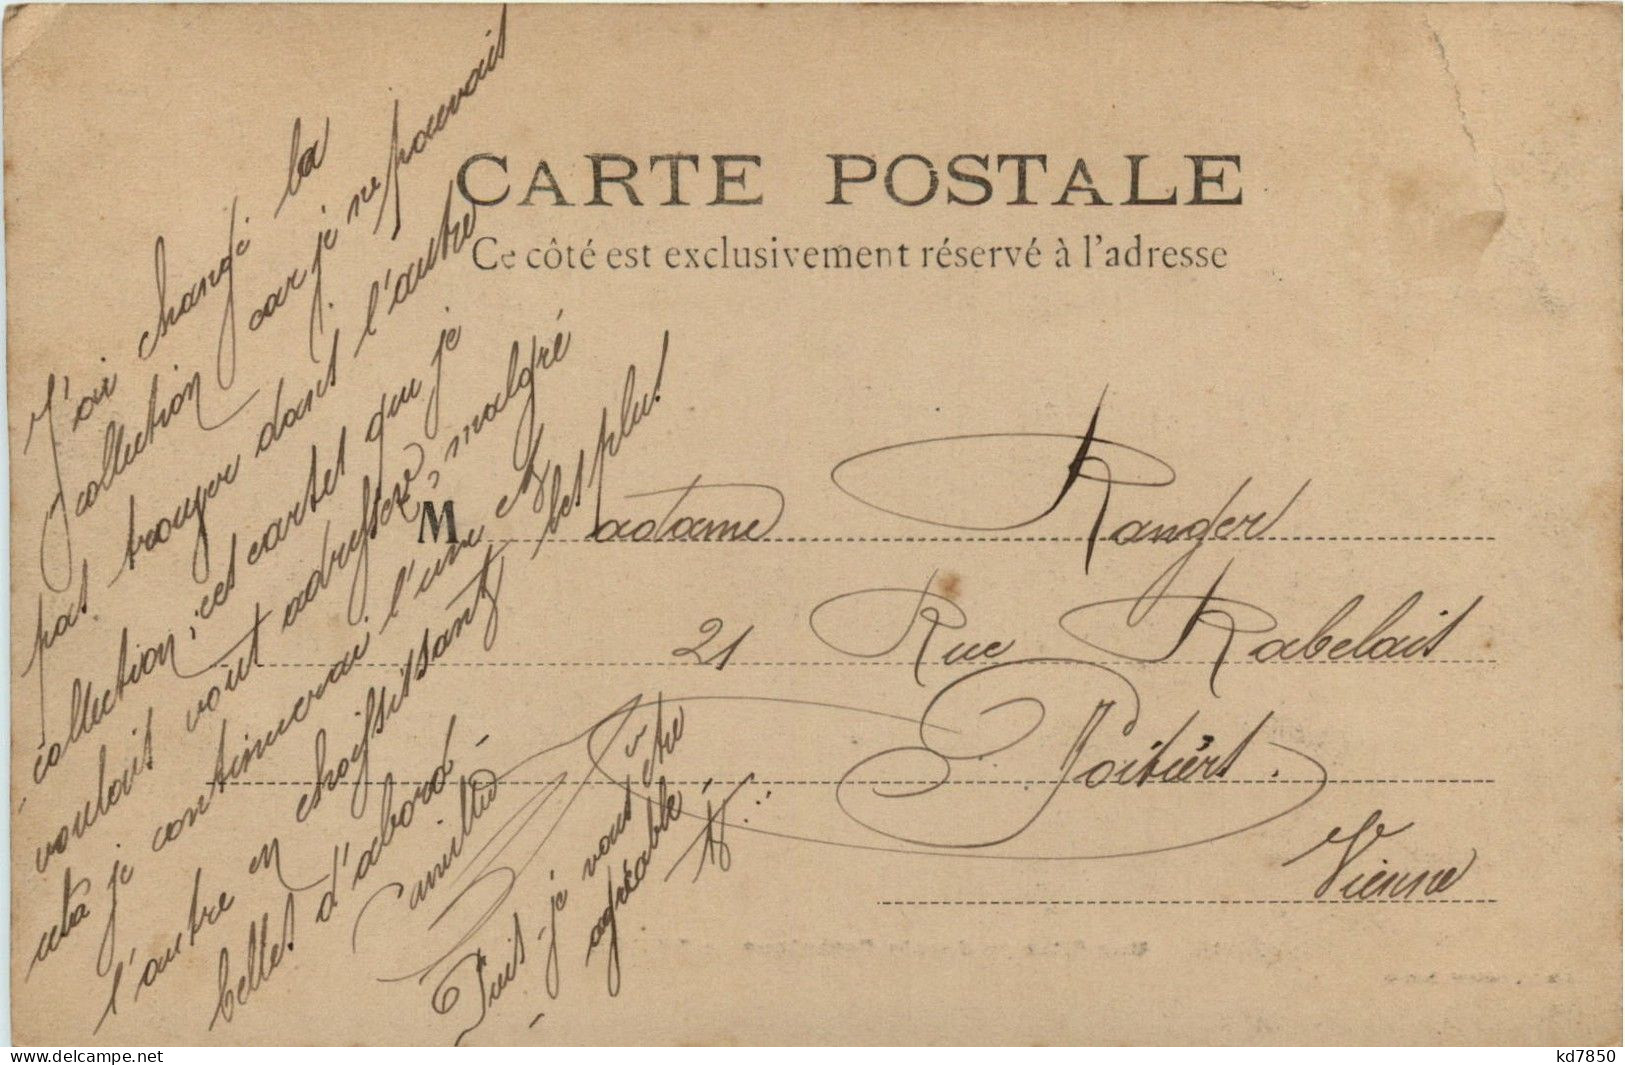 CARTE POSTALE
Ce côté est exclusivement réservé à l'adresse
J'ai changé la
collection car je ne pouvais
pas trouver dans l'autre
collection, ces cartes que je
voulais vous adresser, malgré
cela je continuerai l'une et
l'autre en choisissant les plus
belles d'abord.
Camille
Puis-je vous
être
agréable
Madame Ranger
21 Rue Rabelais
Poitiers.
Vienne
www.delcampe.net
kd7850